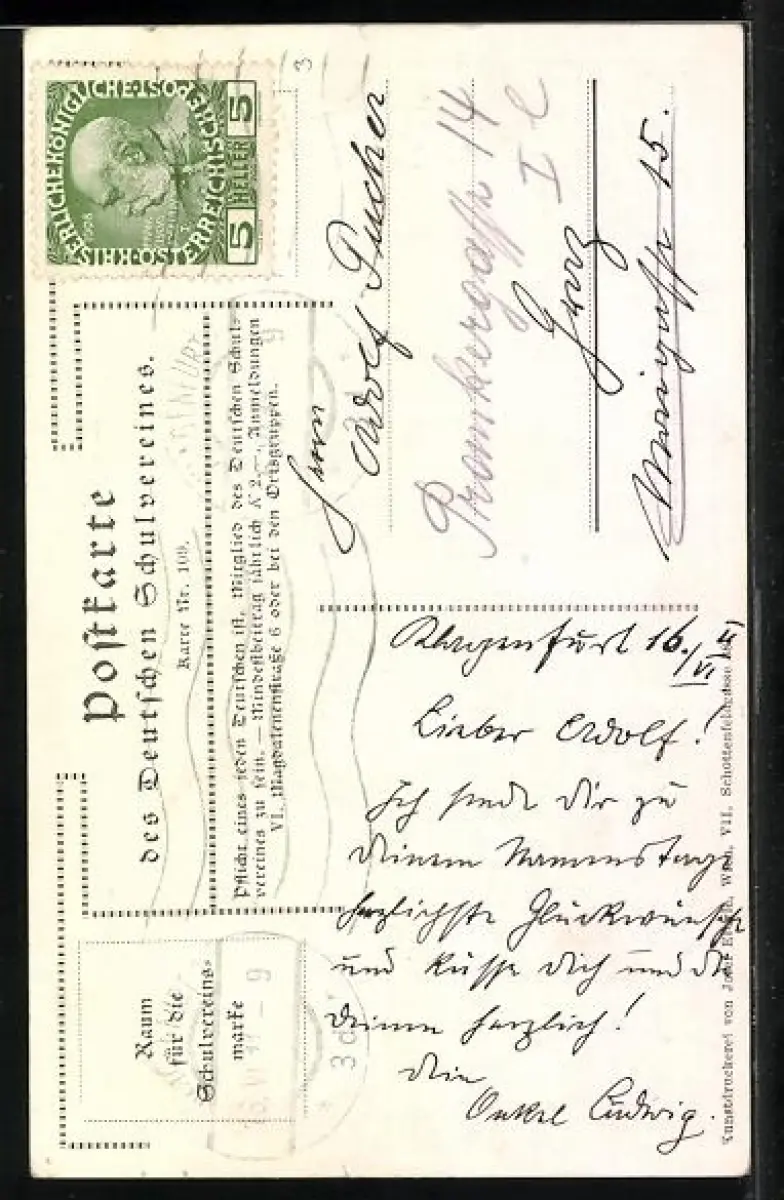 Postkarte
des Deutschen Schulvereines.
Karte Nr. 109.
Pflicht eines jeden Deutschen ist, Mitglied des Deutschen Schul-
vereines zu sein. — Mindestbeitrag jährlich K 2.—, Anmeldungen
VI., Magdalenenstraße 6 oder bei den Ortsgruppen.
KAISERLICHEKÖNIGLICHE·ÖSTERREICHISCHEPOST
1908
5 HELLER 5
3
Raum
für die
Schulvereins-
marke
9
3d
Herrn
Adolf Pucher
14
I
Graz
15.
Klagenfurt 16./VI
Lieber Adolf!
Ich sende Dir zu
Deinem Namenstage
herzlichste Glückwünsche
und küsse Dich und die
Deinen herzlich!
Dein
Onkel Ludwig.
Kunstdruckerei von Josef Wien, VII., Schottenfeldgasse